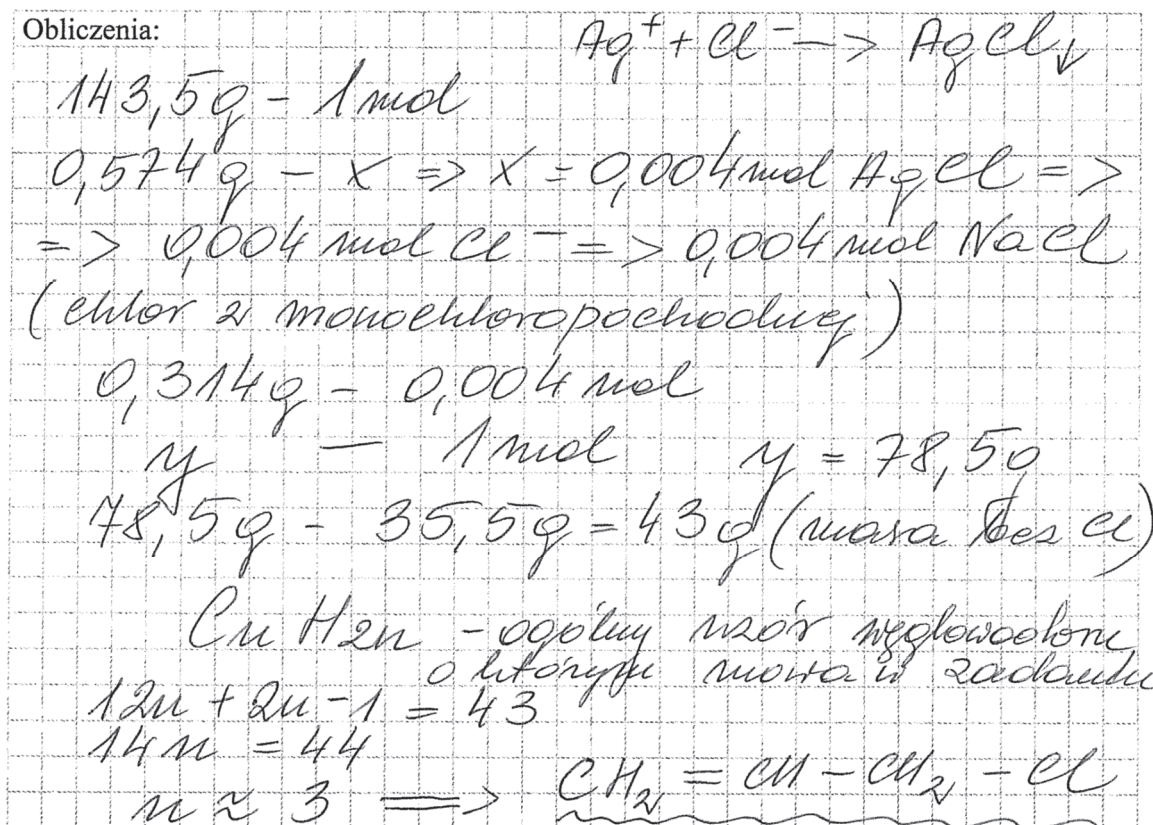 Obliczenia:
Ag⁺ + Cl⁻ —> AgCl↓
143,5g - 1mol
0,574g - x => x = 0,004mol AgCl =>
=> 0,004 mol Cl⁻ => 0,004 mol NaCl
(chlor z monochloropochodnej)
0,314g - 0,004 mol
y — 1 mol y = 78,5g
78,5g - 35,5g = 43g (masa bez Cl)
CnH2n - ogólny wzór węglowodoru
o którym mowa w zadaniu
12n + 2n - 1 = 43
14n = 44
n ≈ 3 ==> CH₂ = CH - CH₂ - Cl